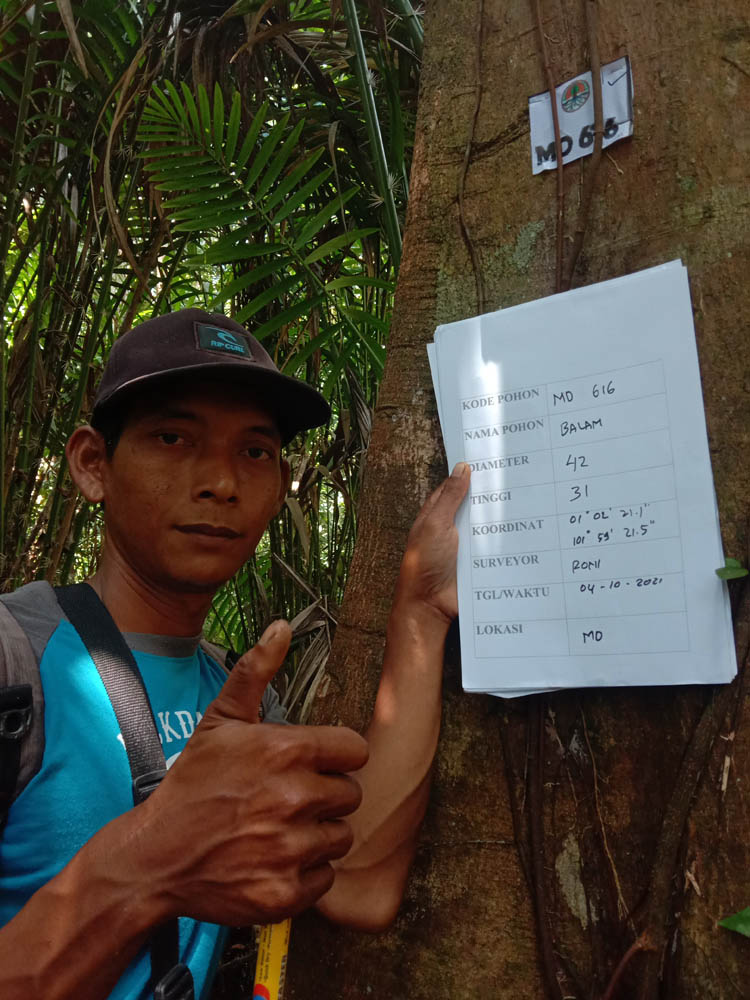 MO 616
RIP CURL
KODE POHON MO 616
NAMA POHON BALAM
DIAMETER 42
TINGGI 31
KOORDINAT 01° 02' 21.1"
101° 59' 21.5"
SURVEYOR ROMI
TGL/WAKTU 04-10-2021
LOKASI MO